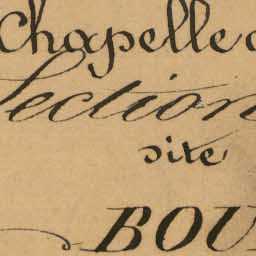 Chapelle
Section
site
BOU